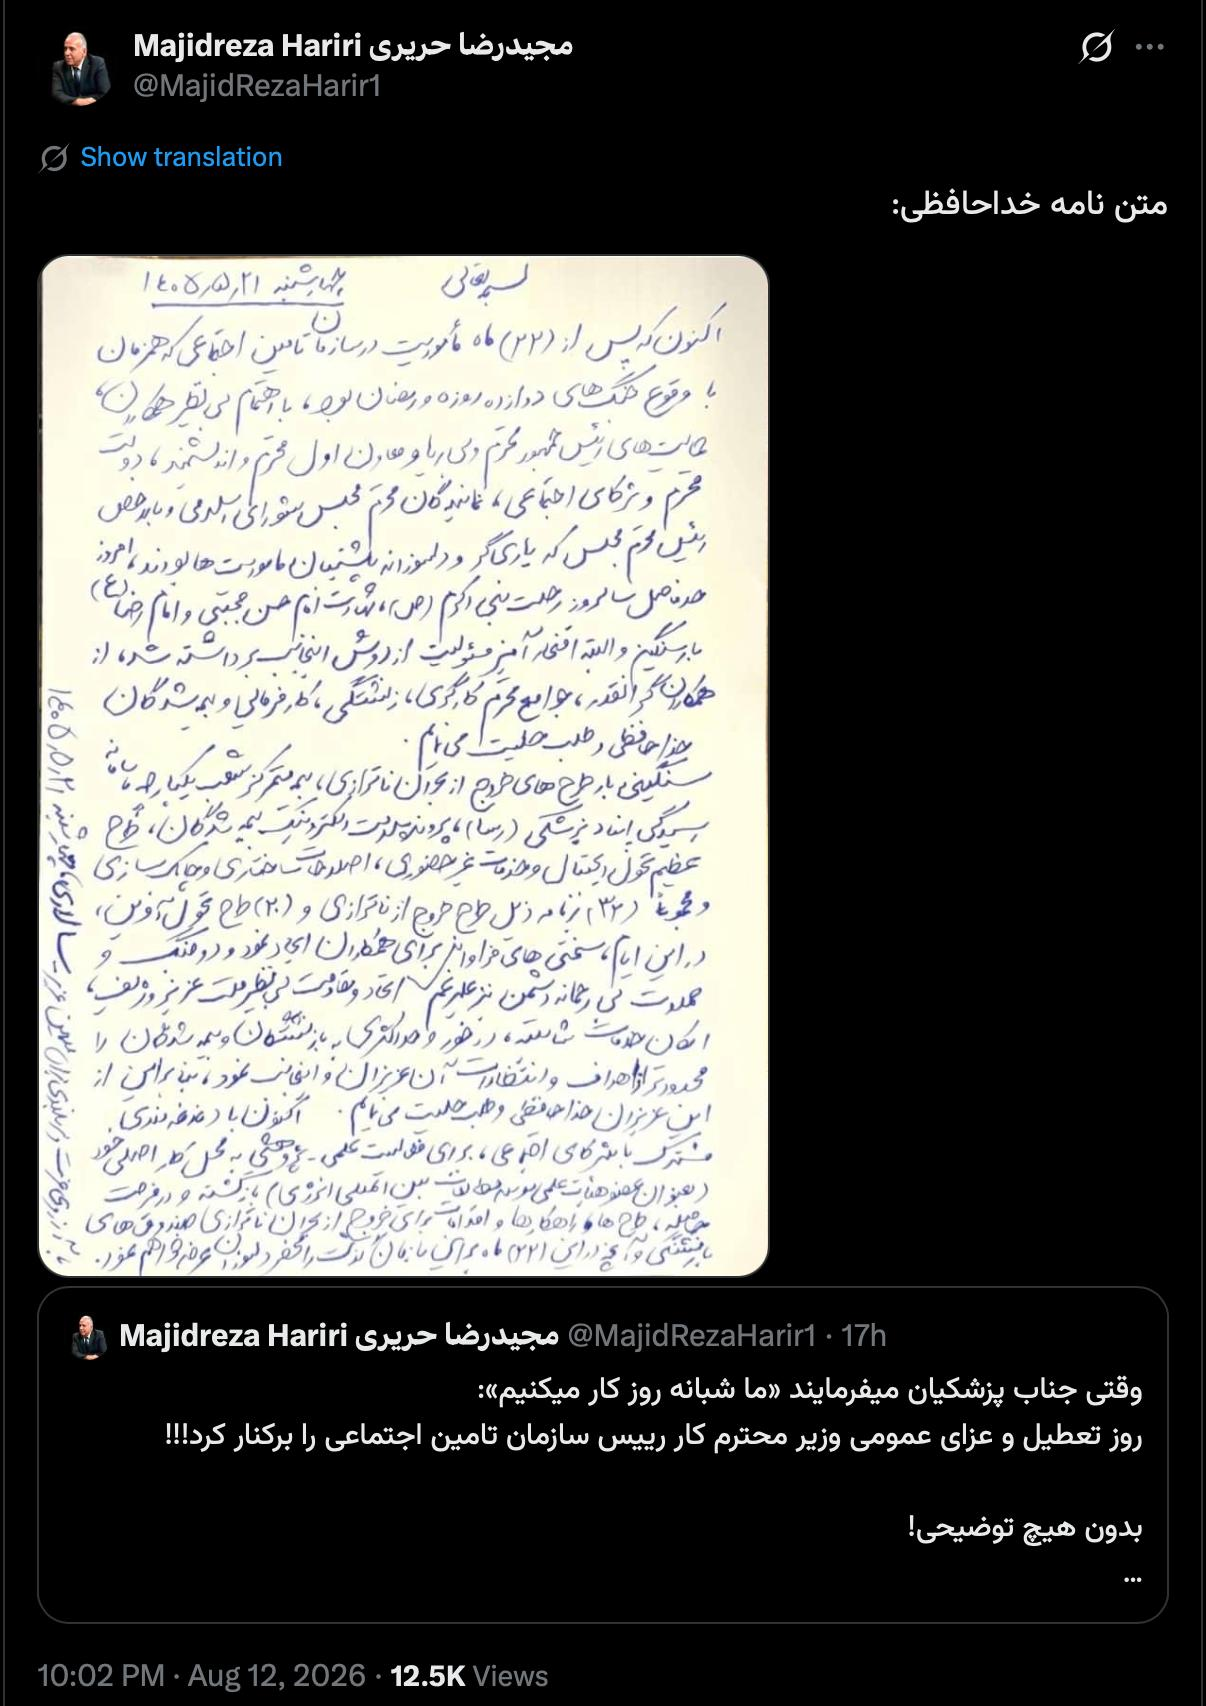 Majidreza Hariri مجیدرضا حریری
@MajidRezaHarir1
Show translation
متن نامه خداحافظی:
چهارشنبه ۱۴۰۵٫۵٫۲۱
اکنون که پس از (۲۲) ماه مأموریت در سازمان تامین اجتماعی که همزمان
با وقوع جنگ‌های دوازده روزه و رمضان بود، با اهتمام بی‌نظیر همکاران،
حمایت‌های رئیس جمهور محترم و بی ریا و معاون اول محترم و اندیشمند، دولت
محترم و شرکای اجتماعی، نمایندگان محترم مجلس شورای اسلامی و بالاخص
رئیس محترم مجلس که یاری‌گر و دلسوزانه پشتیبان ماموریت ها بودند، امروز
حدفاصل سالروز رحلت نبی اکرم (ص)، شهادت امام حسن مجتبی و امام رضا (ع)
بار سنگین و البته افتخار آمیز مسئولیت از دوش اینجانب برداشته شد، از
همکاران گرانقدر، جوامع محترم کارگری، بازنشستگی، کارفرمایی و بیمه شدگان
خداحافظی و طلب حلیت می نمایم.
سنگینی بار طرح های خروج از بحران ناترازی، بیمه متمرکز شعب یکپارچه
رسیدگی اسناد پزشکی (رسا)، پرونده سلامت الکترونیک بیمه شدگان، طرح
عظیم تحول دیجیتال و خدمات غیرحضوری، اصلاحات ساختاری و چابک سازی
و مجموعاً (۳۲) برنامه ذیل طرح خروج از ناترازی و (۲۰) طرح تحول آفرین،
در این ایام، سختی های فراوانی برای همکاران ایجاد نمود و دو جنگ و
حملات بی رحمانه دشمن نیز علیرغم اتحاد و مقاومت بی‌نظیر ملت عزیز و شریف،
امکان خدمات شایسته، در خور و حداکثری به بازنشستگان و بیمه شدگان را
محدودتر از اهداف و انتظارات آن عزیزان و اینجانب نمود، بنابراین از
این عزیزان خداحافظی و طلب حلیت می نمایم. اکنون با دغدغه مندی
مشترک با شرکای اجتماعی، برای فعالیت علمی - پژوهشی به محل کار اصلی خود
(بعنوان عضو هیات علمی موسسه مطالعات بین المللی انرژی) بازگشته و در فرصت
طرح ها، راهکارها و اقدامات برای خروج از بحران ناترازی صندوق های
بازنشستگی و آنچه در این (۲۲) ماه بر این سازمان گذشت را عرضه خواهم نمود.
با آرزوی عزت و سربلندی ایران میهن عزیز سالاری، چهارشنبه ۱۴۰۵٫۵٫۲۱
Majidreza Hariri مجیدرضا حریری @MajidRezaHarir1 · 17h
وقتی جناب پزشکیان میفرمایند «ما شبانه روز کار میکنیم»:
روز تعطیل و عزای عمومی وزیر محترم کار رییس سازمان تامین اجتماعی را برکنار کرد!!!
بدون هیچ توضیحی!
...
10:02 PM · Aug 12, 2026 · 12.5K Views